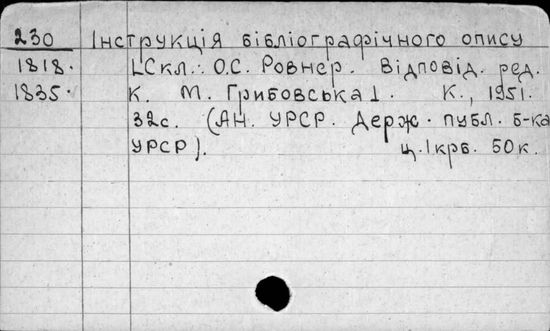 230 Інструкція бібліографічного опису
1818. [Скл.: О.С. Ровнер. Відповід. ред.
1835. К. М. Грибовська]. К., 1951.
32с. (АН. УРСР. Держ. публ. б-ка
УРСР). ц. 1 крб. 50 к.